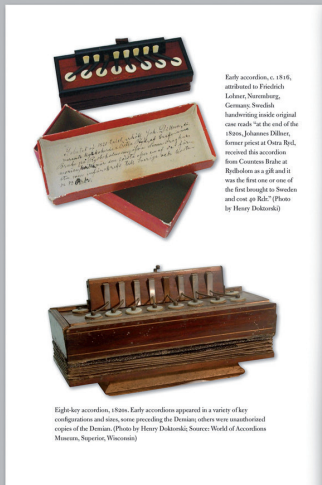 Early accordion, c. 1816,
attributed to Friedrich
Lohner, Nuremburg,
Germany. Swedish
handwriting inside original
case reads “at the end of the
1820s, Johannes Dillner,
former priest at Ostra Ryd,
received this accordion
from Countess Brahe at
Rydholom as a gift and it
was the first one or one of
the first brought to Sweden
and cost 40 Rdr.” (Photo
by Henry Doktorski)
Eight-key accordion, 1820s. Early accordions appeared in a variety of key
configurations and sizes, some preceding the Demian; others were unauthorized
copies of the Demian. (Photo by Henry Doktorski; Source: World of Accordions
Museum, Superior, Wisconsin)